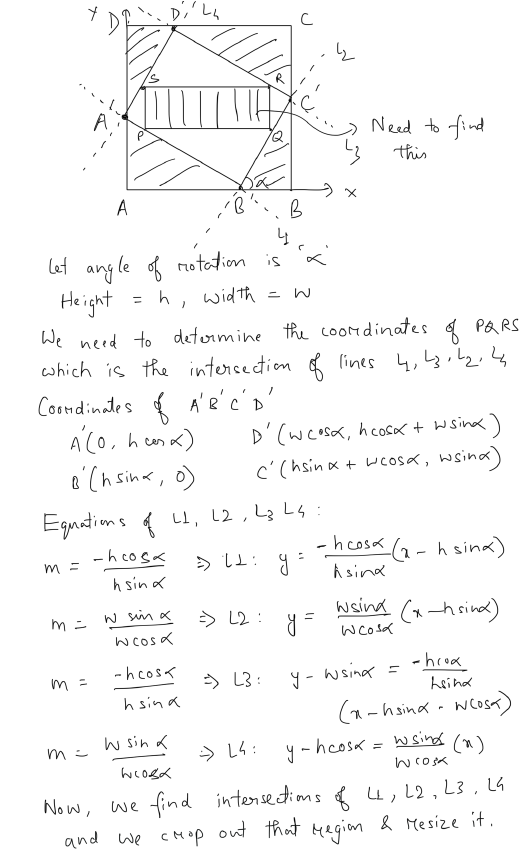 Y D D' L4 C
L2
S R C'
A' P Q Need to find
this
L3
α
A B' B X
L1
Let angle of rotation is "α"
Height = h , width = w
We need to determine the coordinates of PQRS
which is the intersection of lines L1, L3, L2, L4
Coordinates of A' B' C' D'
A'(0, h cosα) D'(wcosα, hcosα + wsinα)
B'(h sinα, 0) C'(hsinα + wcosα, wsinα)
Equations of L1, L2, L3 L4 :
m = -hcosα / hsinα ⇒ L1: y = -hcosα / hsinα (x - h sinα)
m = w sinα / wcosα ⇒ L2: y = wsinα / wcosα (x - hsinα)
m = -hcosα / h sinα ⇒ L3: y - wsinα = -hcosα / hsinα
(x - hsinα - wcosα)
m = w sinα / wcosα ⇒ L4: y - hcosα = wsinα / wcosα (x)
Now, we find intersections of L1, L2, L3, L4
and we crop out that region & resize it.